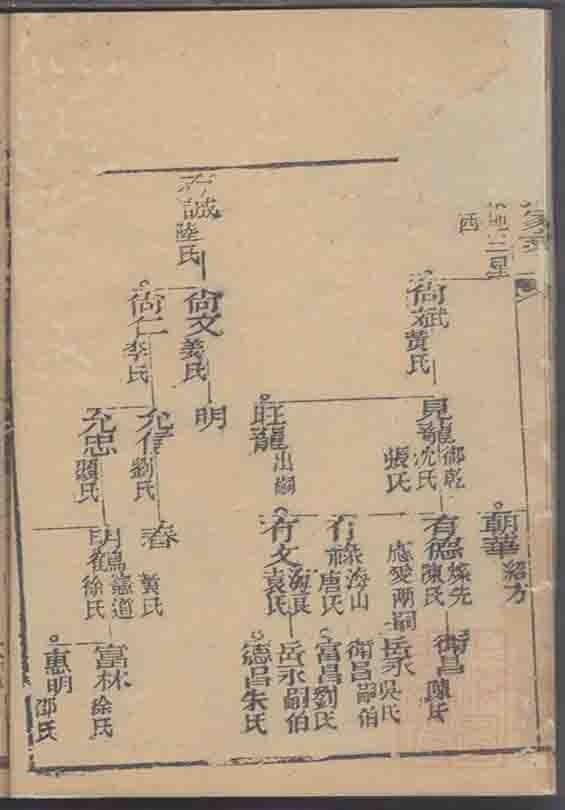 尙斌 黃氏
見龍 御乾
沈氏
張氏
旺龍 出嗣
朝華 紹方
有德 燦先
陳氏
應愛兩嗣
海山
唐氏
有文 海良
袁氏
衛昌
陳氏
岳永 吳氏
衛昌嗣伯
富昌 劉氏
岳永嗣伯
德昌 朱氏
誠 陸氏
尙文 姜氏
尙仁 李氏
明
允信 劉氏
允忠 顧氏
春 黃氏
明 憲道
徐氏
富林 徐氏
惠明 邵氏